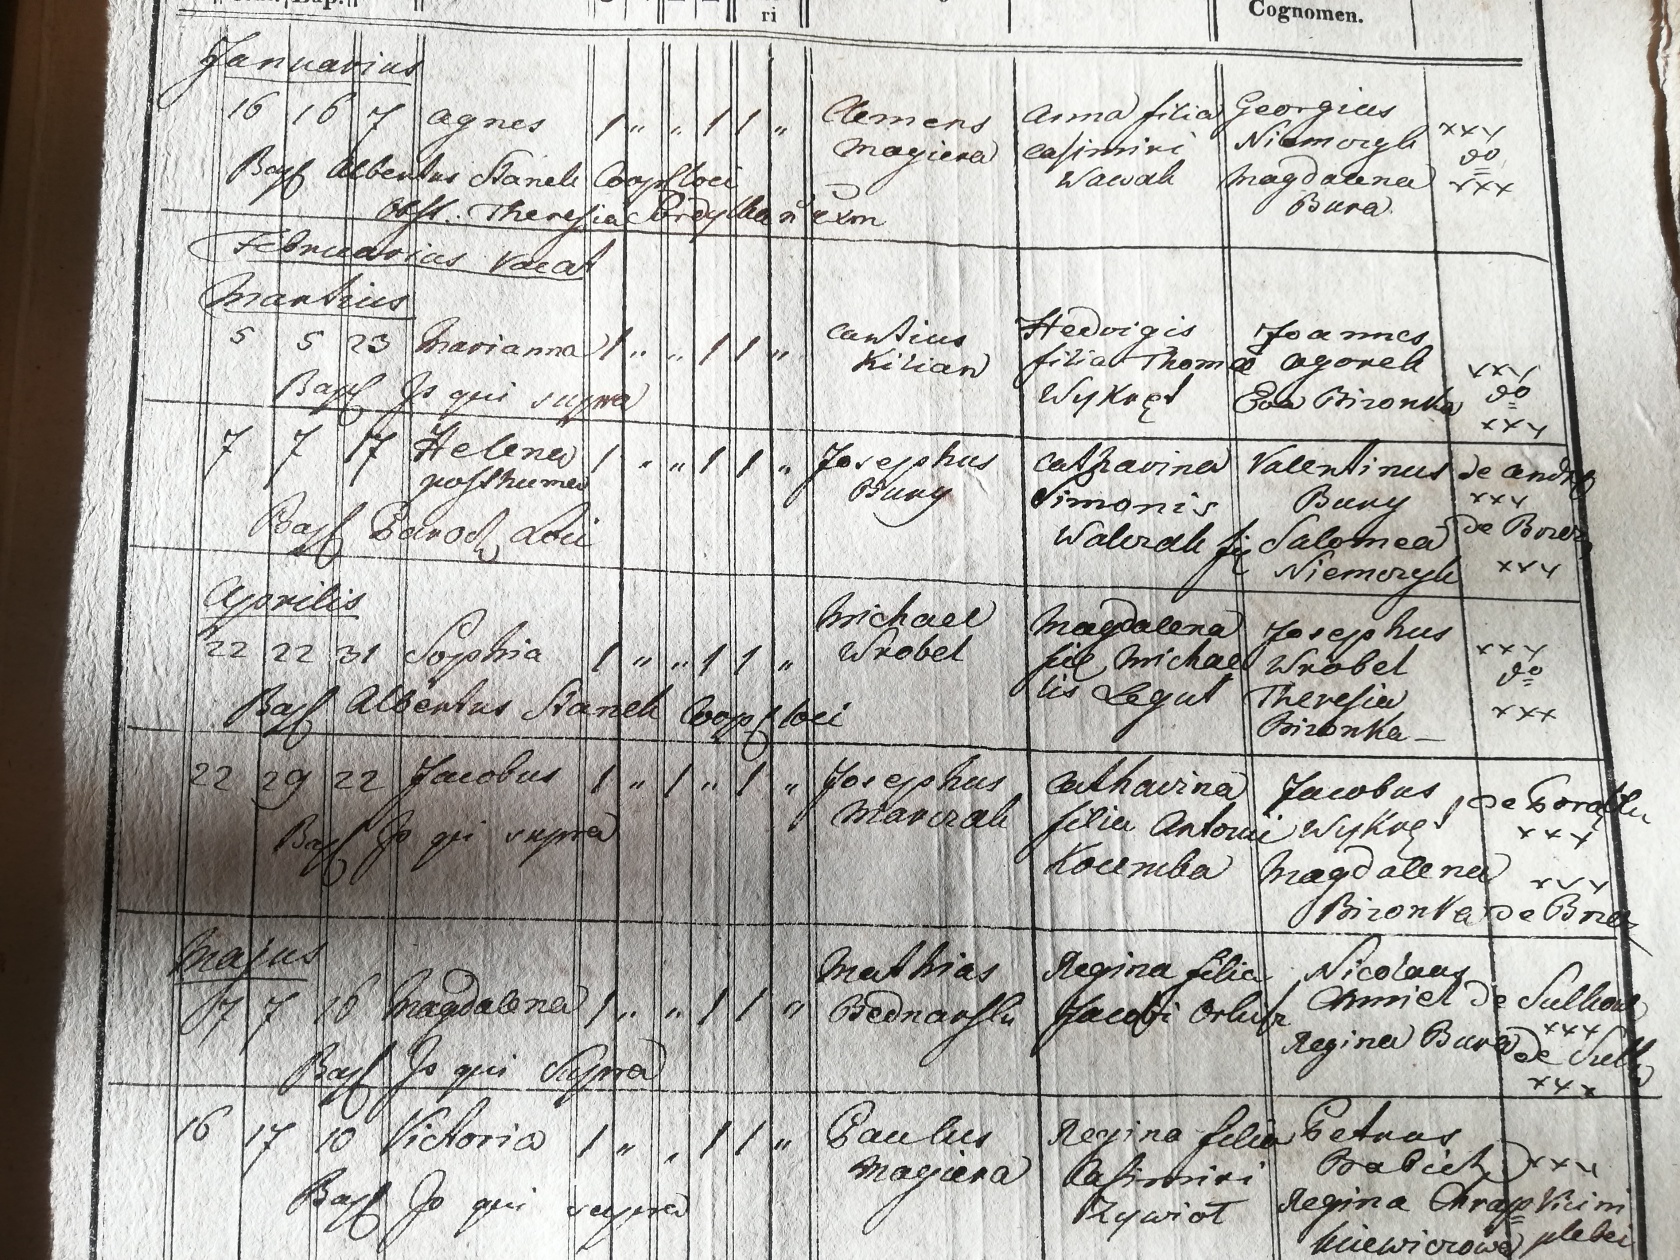 Bap.
ri
Cognomen.
Januarius
16 16 7 Agnes 1 " " 1 1 " Clemens Magiera Anna filia Casimiri Wawak Georgius Niemczyk xxx do Magdalena Bura xxx
Bapt Albertus Stanek Coop loci
Obst. Theresia
Februarius vacat
Martius
5 5 23 Marianna 1 " " 1 1 " Cantius Kilian Hedvigis filia Thomae Wykręt Joannes Ogorek xxx do Eva Bizonka xxx
Bapt Is qui supra
7 7 17 Helena posthuma 1 " " 1 1 " Josephus Bury Catharina Simonis Walczak fil Valentinus Bury de Andry xxx Salomea Niemczyk xxx
Bapt Paroch Loci
Aprilis
22 22 31 Sophia 1 " " 1 1 " Michael Wrobel Magdalena fil Michaelis Legut Josephus Wrobel xxx do Theresia Bizonka xxx
Bapt Albertus Stanek Coop loci
22 29 22 Jacobus 1 " 1 " 1 " Josephus Marczak Catharina filia Antonii Koczumba Jacobus Wykręt xxx Magdalena Bizonka xxx
Bapt Is qui supra
Majus
7 7 16 Magdalena 1 " " 1 1 " Mathias Bednarski Regina filia Jacobi Nicolaus Chmiel de xxx Regina Bura de xxx
Bapt Is qui supra
16 17 10 Victoria 1 " " 1 1 " Paulus Magiera Regina filia Casimiri Zywiot Petrus Babicki xxx Regina Vicini plebei
Bapt Is qui supra